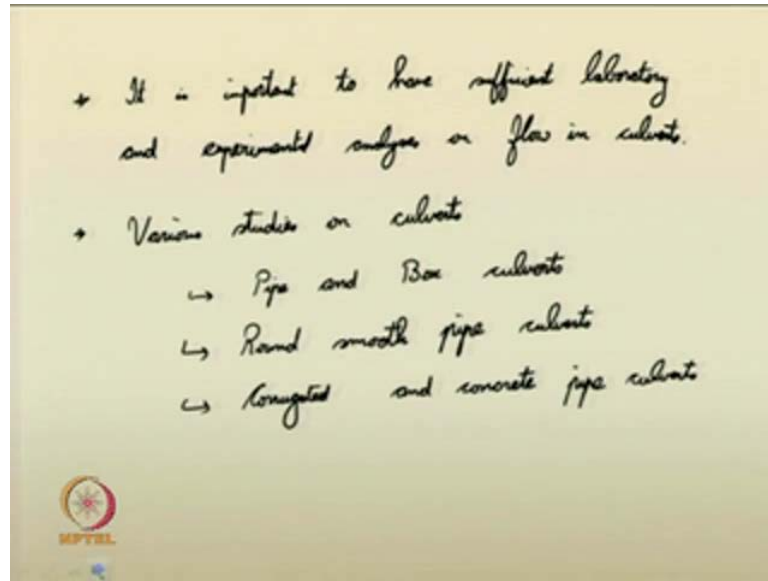 * It is important to have sufficient laboratory
and experimental analyses on flow in culverts.
* Various studies on culverts
↳ Pipe and Box culverts
↳ Round smooth pipe culverts
↳ Corrugated and concrete pipe culverts
NPTEL